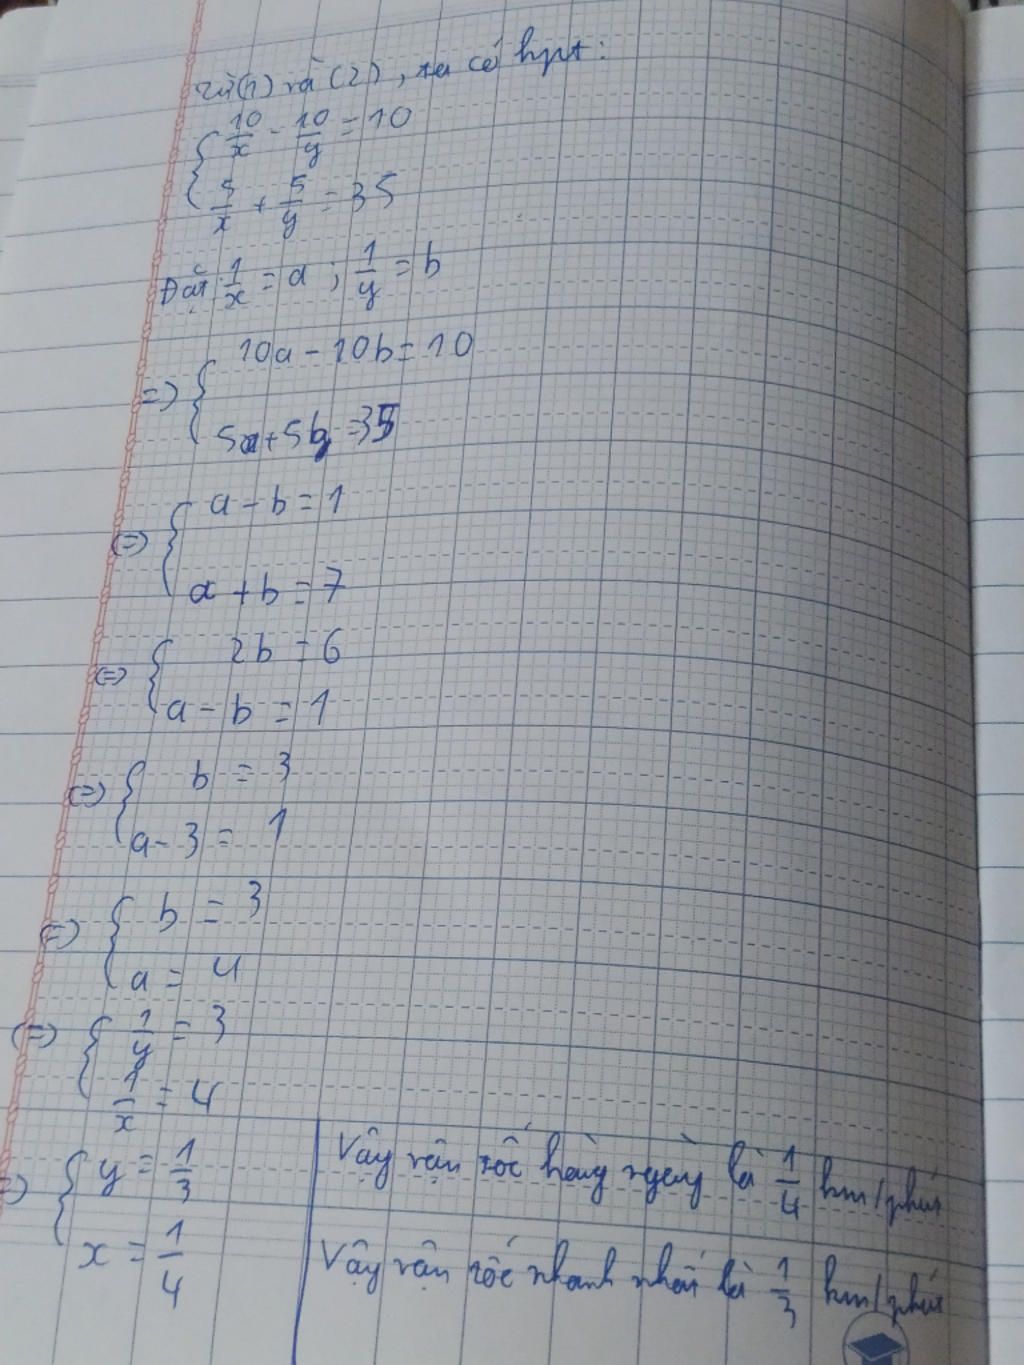 Từ (1) và (2), ta có hpt:
{ 10/x - 10/y = 10
5/x + 5/y = 35
Đặt 1/x = a ; 1/y = b
=> { 10a - 10b = 10
5a + 5b = 35
<=> { a - b = 1
a + b = 7
<=> { 2b = 6
a - b = 1
<=> { b = 3
a - 3 = 1
<=> { b = 3
a = 4
<=> { 1/y = 3
1/x = 4
=> { y = 1/3
x = 1/4
Vậy vận tốc hàng ngày là 1/4 km/phút
Vậy vận tốc nhanh nhất là 1/3 km/phút